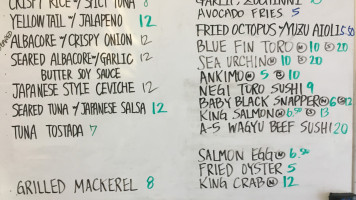 CRISPY RICE w/ SPICY TUNA 8
YELLOWTAIL w/ JALAPENO 12
ALBACORE w/ CRISPY ONION 12
SEARED ALBACORE w/ GARLIC 12
BUTTER SOY SAUCE
JAPANESE STYLE CEVICHE 12
SEARED TUNA w/ JAPANESE SALSA 12
TUNA TOSTADA 7
GRILLED MACKEREL 8
AVOCADO FRIES 5
FRIED OCTOPUS w/ YUZU AIOLI
BLUE FIN TORO 10 20
SEA URCHIN 10 20
ANKIMO 5 10
NEGI TORO SUSHI 9
BABY BLACK SNAPPER 6 12
KING SALMON 6.50 13
A-5 WAGYU BEEF SUSHI 20
SALMON EGG 6.50
FRIED OYSTER 5
KING CRAB 12